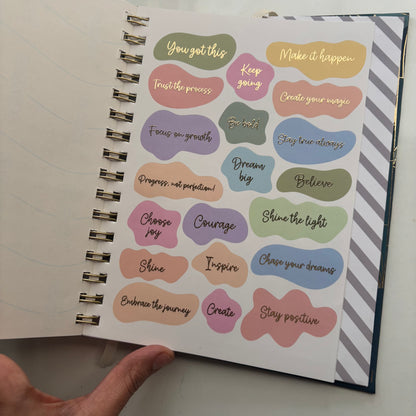 You got this
Keep going
Make it happen
Trust the process
Create your magic
Be bold
Focus on growth
Stay true always
Dream big
Progress, not perfection!
Believe
Choose joy
Courage
Shine the light
Shine
Inspire
Chase your dreams
Embrace the journey
Create
Stay positive